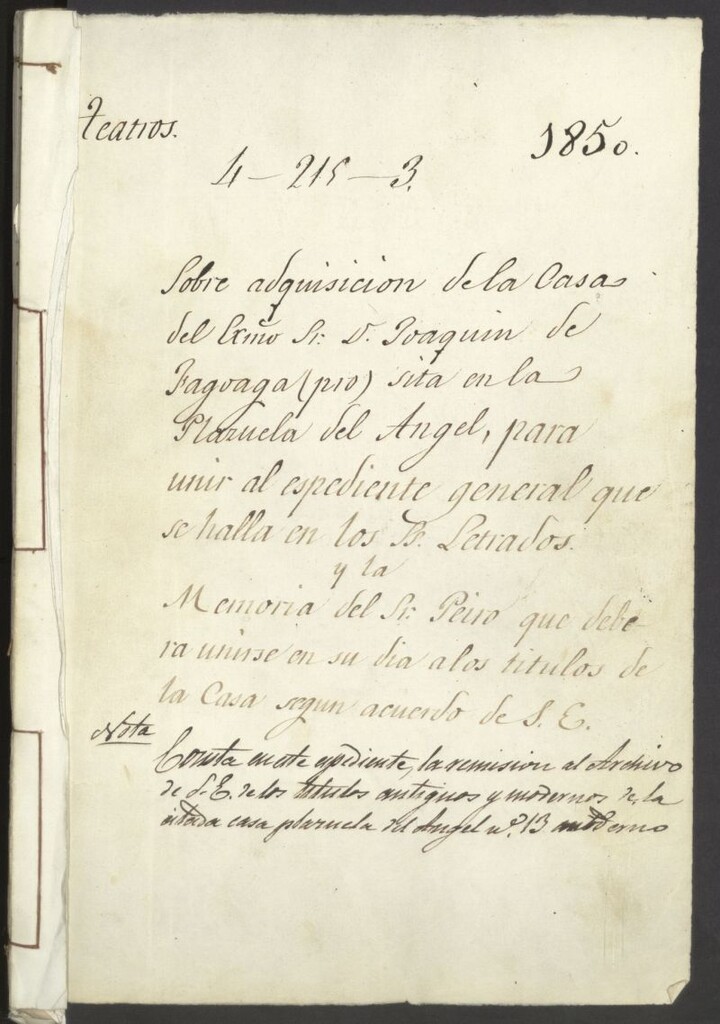 Teatros.
1850.
4-215-3.
Sobre adquisicion dela Casa
del Exmo Sr. D. Joaquin de
Fagoaga (pro) sita en la
Plazuela del Angel, para
unir al espediente general que
se halla en los SS. Letrados.
y la
Memoria del Sr. Peiro que debe
ra unirse en su dia alos titulos de
la Casa segun acuerdo de S. E.
Nota
Consta en este espediente, la remision al Archivo
de S. E. de los titulos antiguos y modernos de la
citada casa plazuela del Angel nº. 13 moderno